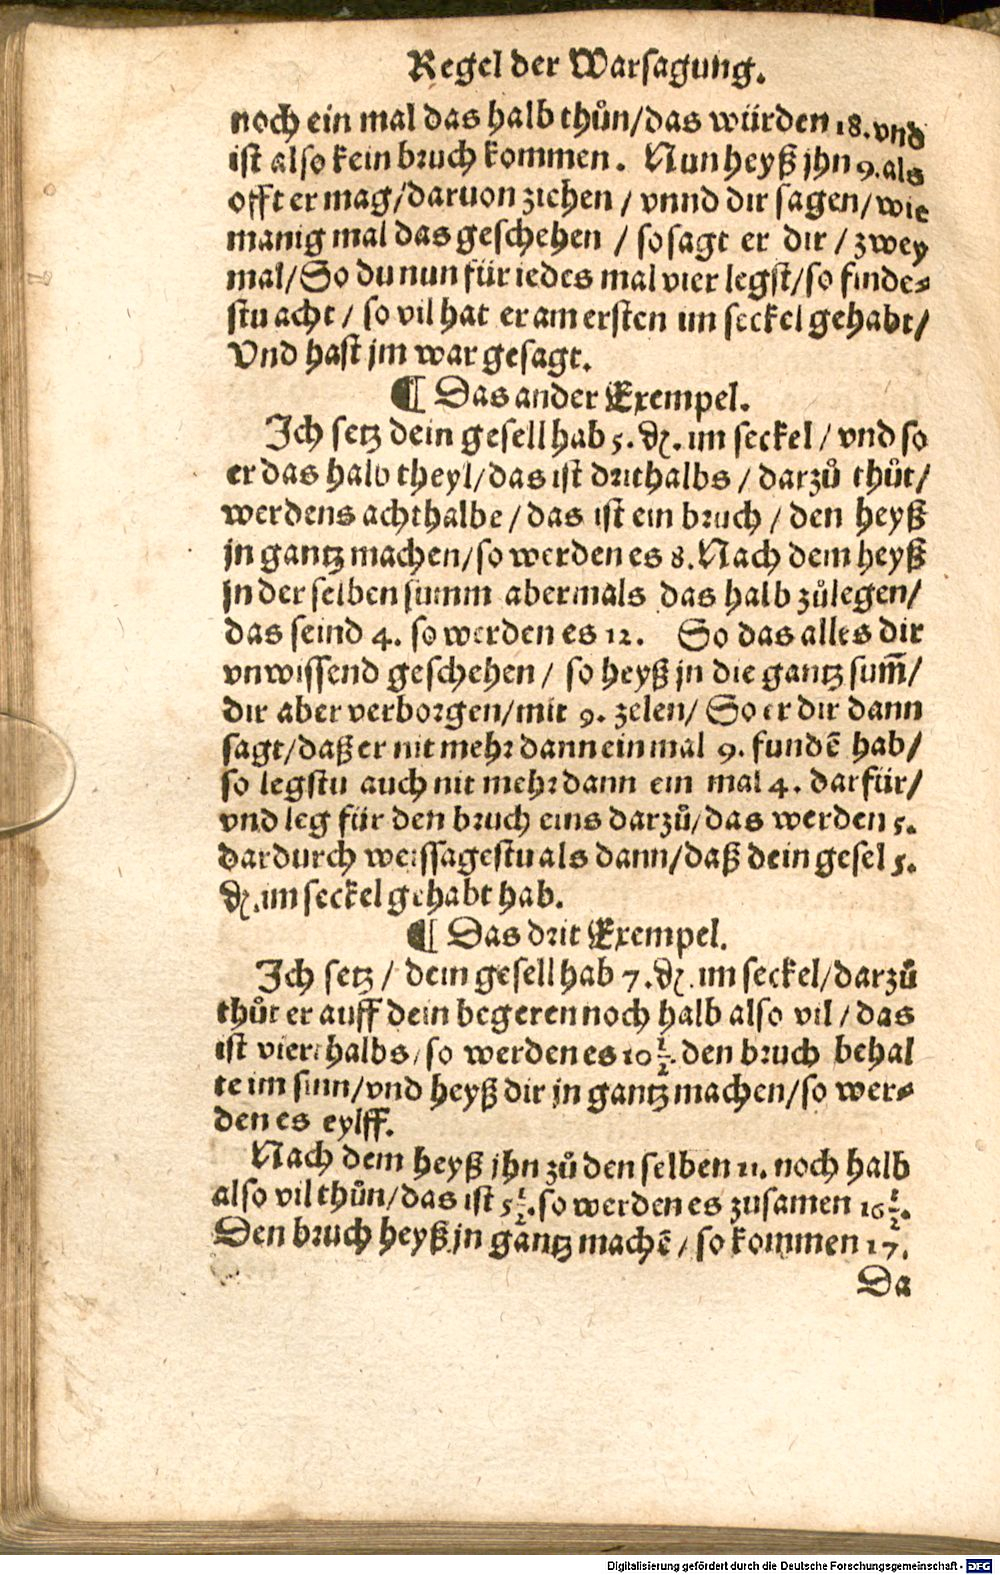 Regel der Warsagung.
noch ein mal das halb thůn/das würden 18.vnd
ist also kein bruch kommen. Nun heyß jhn 9.als
offt er mag/daruon ziehen / vnnd dir sagen/wie
manig mal das geschehen / so sagt er dir / zwey
mal/So du nun für iedes mal vier legst/so finde⸗
stu acht / so vil hat er am ersten im seckel gehabt/
Vnd hast jm war gesagt.
¶ Das ander Exempel.
Ich setz dein gesell hab 5. ₰. im seckel / vnd so
er das halb theyl/das ist drithalbs / darzů thůt/
werdens achthalbe / das ist ein bruch / den heyß
jn gantz machen/so werden es 8. Nach dem heyß
jn der selben summ abermals das halb zůlegen/
das seind 4. so werden es 12. So das alles dir
vnwissend geschehen / so heyß jn die gantz sum̃/
dir aber verborgen/mit 9. zelen/ So er dir dann
sagt/daß er nit mehr dann ein mal 9. fundẽ hab/
so legstu auch nit mehr dann ein mal 4. darfür/
vnd leg für den bruch eins darzů/das werden 5.
dardurch weissagestu als dann/daß dein gesel 5.
₰.im seckel gehabt hab.
¶ Das drit Exempel.
Ich setz / dein gesell hab 7.₰. im seckel/darzů
thůt er auff dein begeren noch halb also vil / das
ist vierthalbs/so werden es 10 1/2. den bruch behal
te im sinn/vnd heyß dir jn gantz machen/so wer⸗
den es eylff.
Nach dem heyß jhn zů den selben 11. noch halb
also vil thůn/das ist 5 1/2.so werden es zusamen 16 1/2.
Den bruch heyß jn gantz machẽ / so kommen 17.
Da
Digitalisierung gefördert durch die Deutsche Forschungsgemeinschaft - DFG